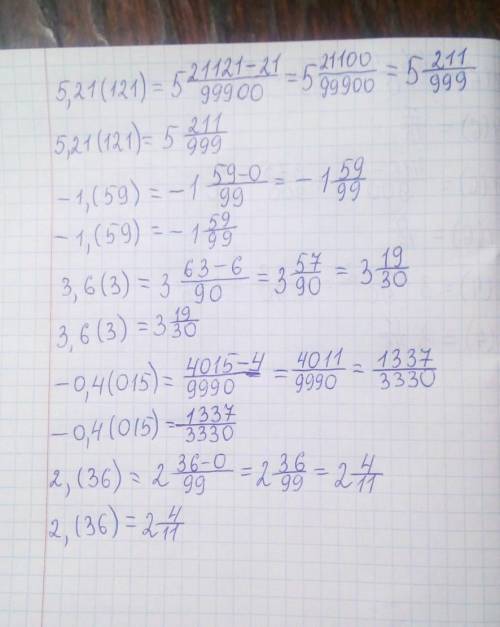 5,21(121) = 5 21121-21/99900 = 5 21100/99900 = 5 211/999
5,21(121) = 5 211/999
-1,(59) = -1 59-0/99 = -1 59/99
-1,(59) = -1 59/99
3,6(3) = 3 63-6/90 = 3 57/90 = 3 19/30
3,6(3) = 3 19/30
-0,4(015) = 4015-4/9990 = 4011/9990 = 1337/3330
-0,4(015) = -1337/3330
2,(36) = 2 36-0/99 = 2 36/99 = 2 4/11
2,(36) = 2 4/11